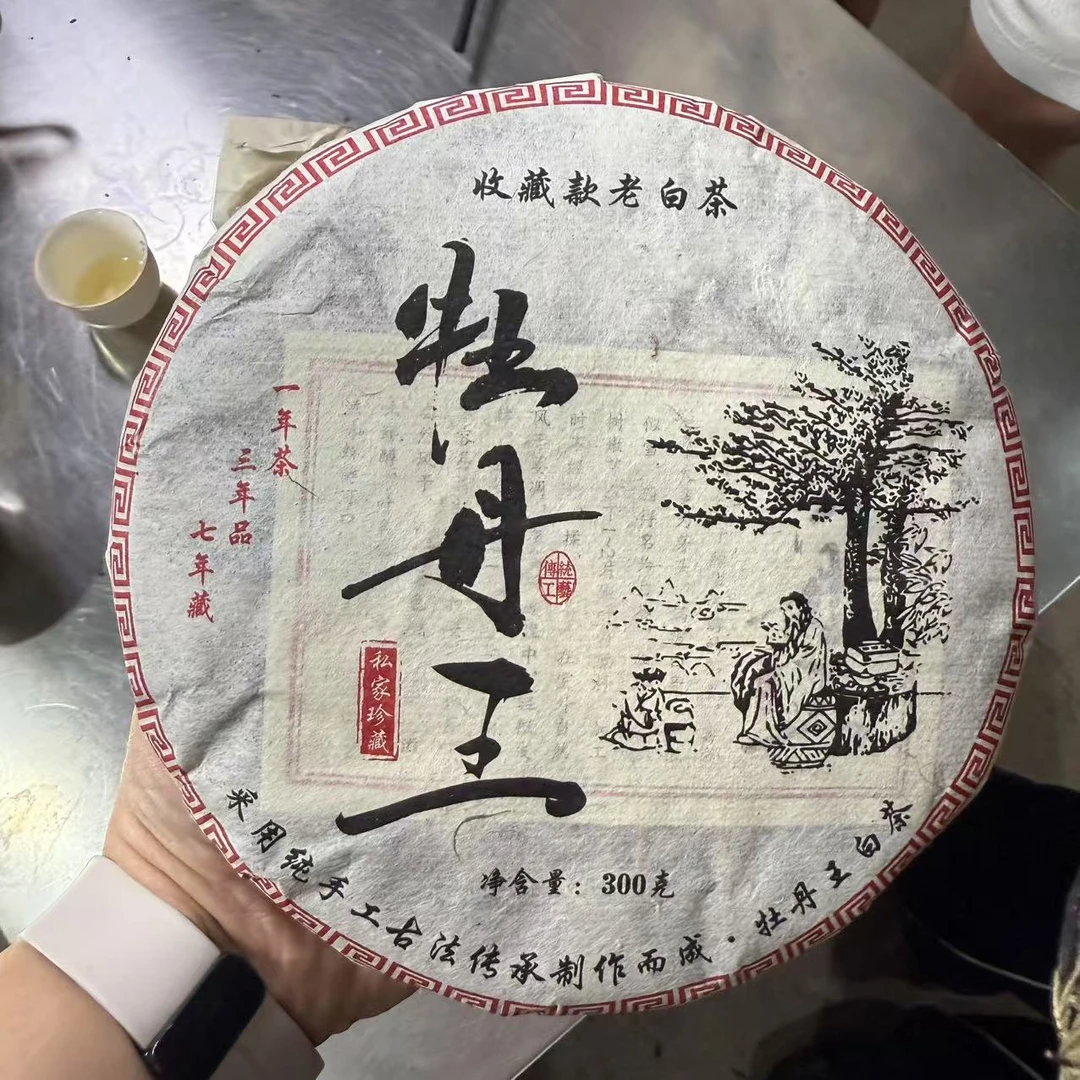 收藏款老白茶
牡丹王
一年茶
三年品
七年藏
傳統工藝
私家珍藏
净含量：300克
采用纯手工古法传承制作而成·牡丹王白茶